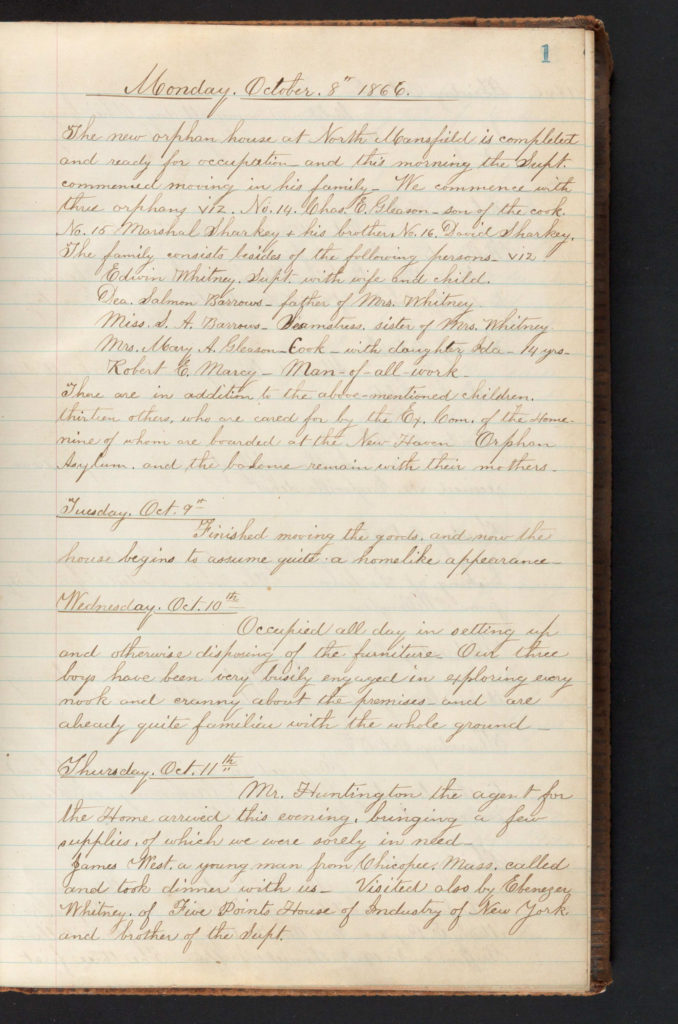 1
Monday. October. 8th 1866.
The new orphan house at North Mansfield is completed
and ready for occupation – and this morning the Supt.
commenced moving in his family – We commence with
three orphans viz. No. 14. Chas. E. Gleason – son of the cook.
No. 15 Marshal Sharkey + his brother No. 16. David Sharkey.
The family consists besides of the following persons – viz
Edwin Whitney. Supt. with wife and child.
Dea. Salmon Barrows – father of Mrs. Whitney.
Miss. S. A. Barrows – Seamstress, sister of Mrs. Whitney.
Mrs. Mary A. Gleason – Cook – with daughter Ida – 14 yrs –
Robert E. Marcy – Man-of-all-work –
There are in addition to the above-mentioned children.
thirteen others, who are cared for by the Ex. Com. of the Home –
nine of whom are boarded at the New Haven Orphan
Asylum. and the balance remain with their mothers –
Tuesday. Oct. 9th
Finished moving the goods. and now the
house begins to assume quite a homelike appearance –
Wednesday. Oct. 10th
Occupied all day in setting up
and otherwise disposing of the furniture – Our three
boys have been very busily engaged in exploring every
nook and cranny about the premises – and are
already quite familiar with the whole ground –
Thursday. Oct. 11th
Mr. Huntington the agent for
the Home arrived this evening. bringing a few
supplies. of which we were sorely in need –
James West. a young man from Chicopee, Mass. called
and took dinner with us – Visited also by Ebenezer
Whitney. of Five Points House of Industry of New York.
and brother of the Supt.